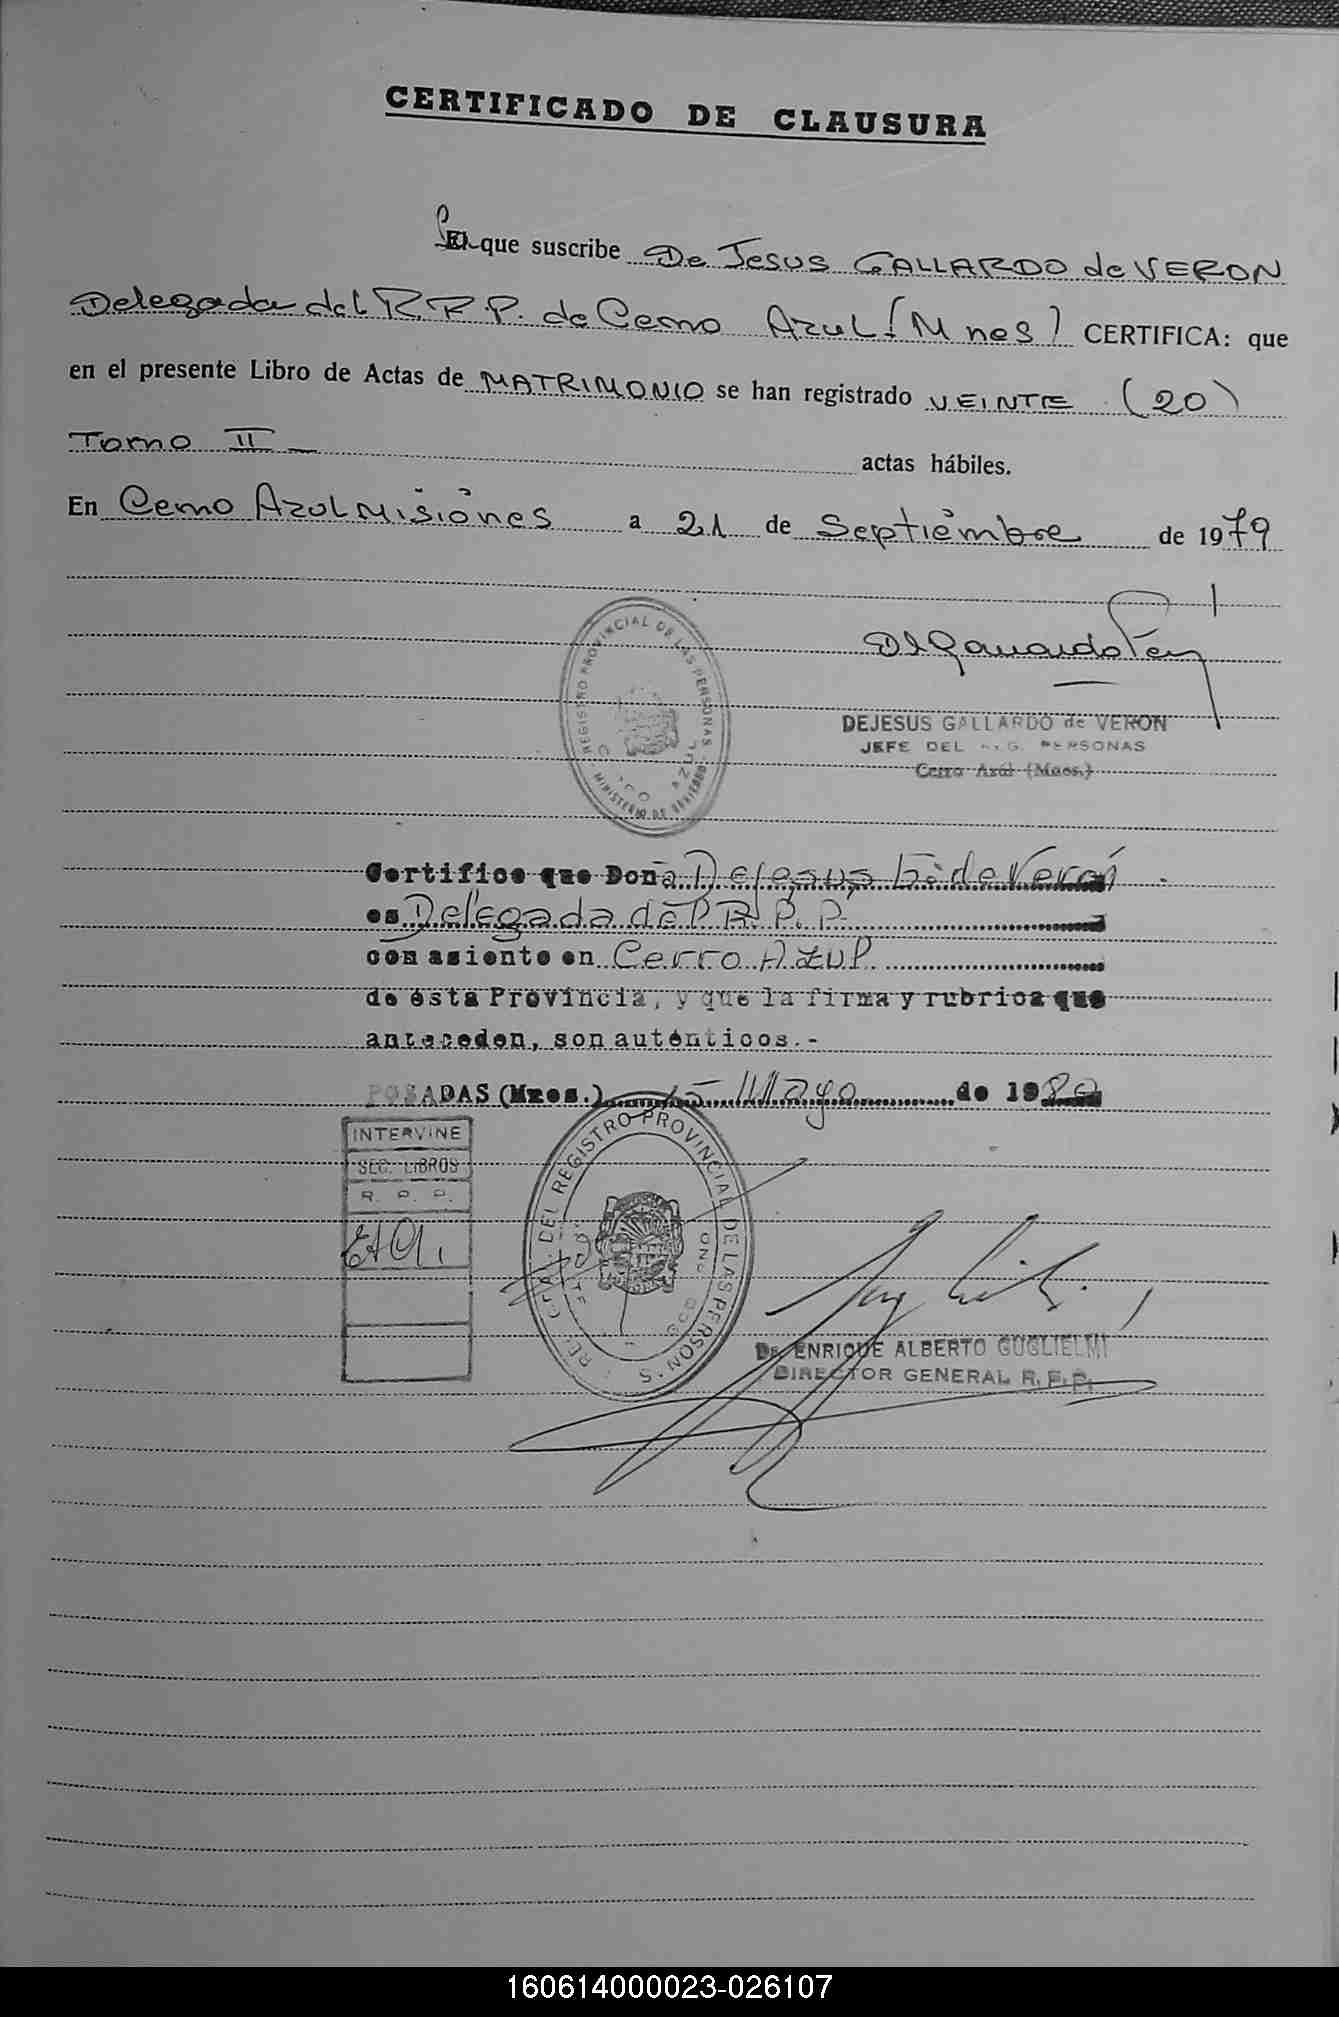 CERTIFICADO DE CLAUSURA
La que suscribe De Jesus GALLARDO de VERON
Delegada del R.R.P. de Cerro Azul (Mnes) CERTIFICA: que
en el presente Libro de Actas de MATRIMONIO se han registrado VEINTE (20)
Tomo II
actas hábiles.
En Cerro Azul Misiones a 21 de Septiembre de 1979
REGISTRO PROVINCIAL DE LAS PERSONAS
MINISTERIO DE GOBIERNO
CERRO AZUL
DEJESUS GALLARDO de VERON
JEFE DEL REG. PERSONAS
Cerro Azul (Mnes.)
Certifico que Doña Dejesus G. de Verón
es Delegada del R.P.P.
con asiento en Cerro Azul
de ésta Provincia, y que la firma y rubrica que
anteceden, son auténticos.-
POSADAS (Mnes.) 15 Mayo de 1980
INTERVINE
SEC. LIBROS
R. P. P.
DEL REGISTRO PROVINCIAL DE LAS PERSONAS
Dr. ENRIQUE ALBERTO GUGLIELMI
DIRECTOR GENERAL R.P.P.
160614000023-026107